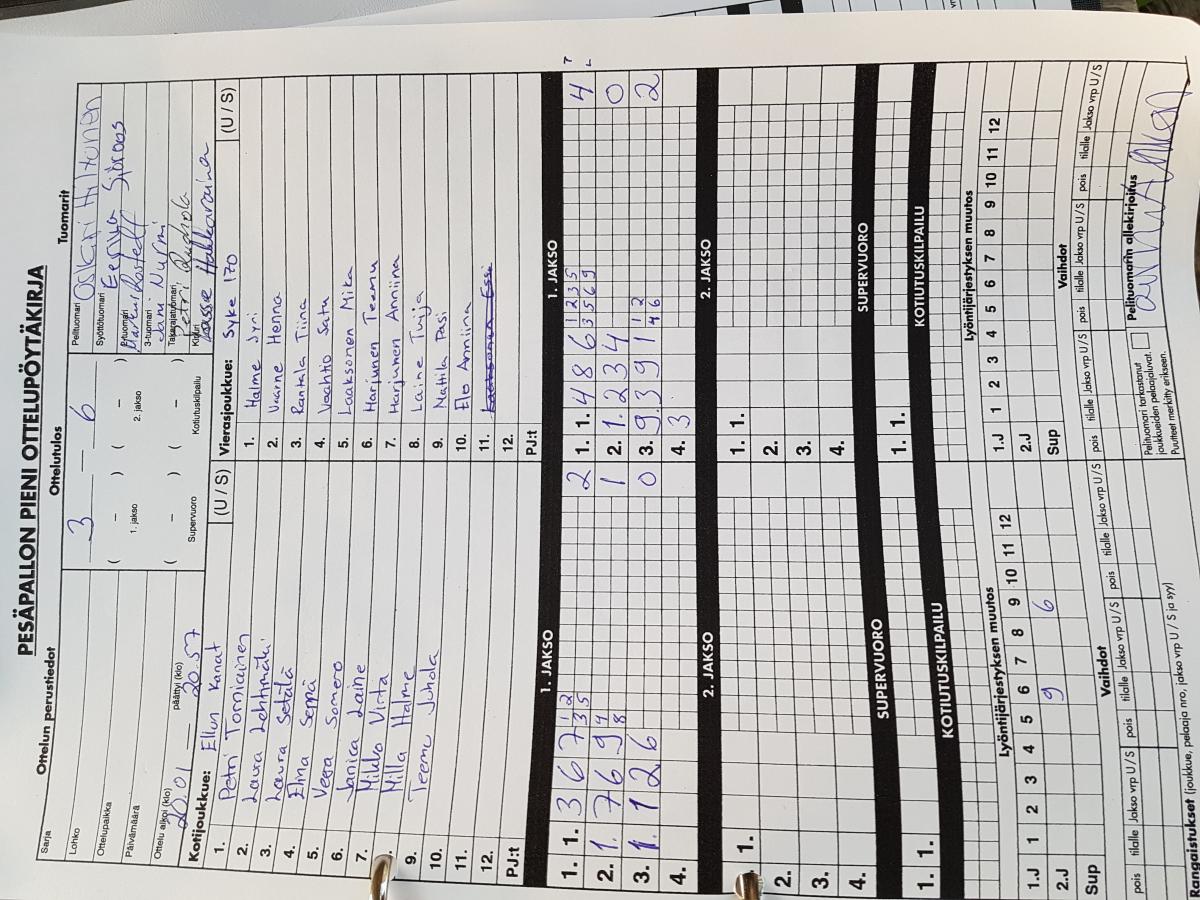 PESÄPALLON PIENI OTTELUPÖYTÄKIRJA
Ottelun perustiedot
Ottelutulos
Tuomarit
Sarja
Lohko
Ottelupaikka
Päivämäärä
Ottelu alkoi (klo)
päättyi (klo)
20.01 — 20.57
3 — 6
( – ) ( – )
1. jakso
2. jakso
( – ) ( – )
Supervuoro
Kotiutuskilpailu
Pelituomari
Oskari Hiltunen
Syöttötuomari
Eerika Sjöroos
2-tuomari
3-tuomari
Jani Nurmi
Takarajatuomari
Petri
Kirjuri
Lasse
Kotijoukkue: Ellun Kanat (U / S)
1. Petri Torniainen
2. Laura Lehtimäki
3. Laura Setälä
4. Elina Seppä
5. Veera Somero
6. Janica Laine
7. Mikko Virta
8. Milla Halme
9. Teemu Juhola
10.
11.
12.
PJ:t
Vierasjoukkue: Syke 170 (U / S)
1. Halme Jyri
2. Vuarne Henna
3. Rantala Tiina
4. Vaahtio Satu
5. Laaksonen Mika
6. Harjunen Teemu
7. Harjunen Anniina
8. Laine Tuija
9. Nattila Pasi
10. Elo Anniina
11. Laaksonen Essi
12.
PJ:t
1. JAKSO
1. 1. 3 6 7 1 2 3 5 2
2. 1. 7 6 9 4 8 1
3. 1. 1 2 6 0
4.
1. JAKSO
T
L
1. 1. 4 8 6 1 2 3 5 3 5 6 9 4
2. 1. 2 3 4 0
3. 9. 3 9 1 1 2 4 6 2
4. 3
2. JAKSO
1. 1.
2.
3.
4.
2. JAKSO
1. 1.
2.
3.
4.
SUPERVUORO
1. 1.
SUPERVUORO
1. 1.
KOTIUTUSKILPAILU
KOTIUTUSKILPAILU
Lyöntijärjestyksen muutos
1.J 1 2 3 4 5 6 7 8 9 10 11 12
2.J 9 6
Sup
Lyöntijärjestyksen muutos
1.J 1 2 3 4 5 6 7 8 9 10 11 12
2.J
Sup
Vaihdot
pois tilalle Jakso vrp U/S pois tilalle Jakso vrp U/S pois tilalle Jakso vrp U/S
Vaihdot
pois tilalle Jakso vrp U/S pois tilalle Jakso vrp U/S pois tilalle Jakso vrp U/S
Rangaistukset (joukkue, pelaaja nro, jakso vrp U / S ja syy)
Pelituomari tarkastanut
joukkueiden pelaajaluvat.
Puutteet merkitty erikseen.
Pelituomarin allekirjoitus